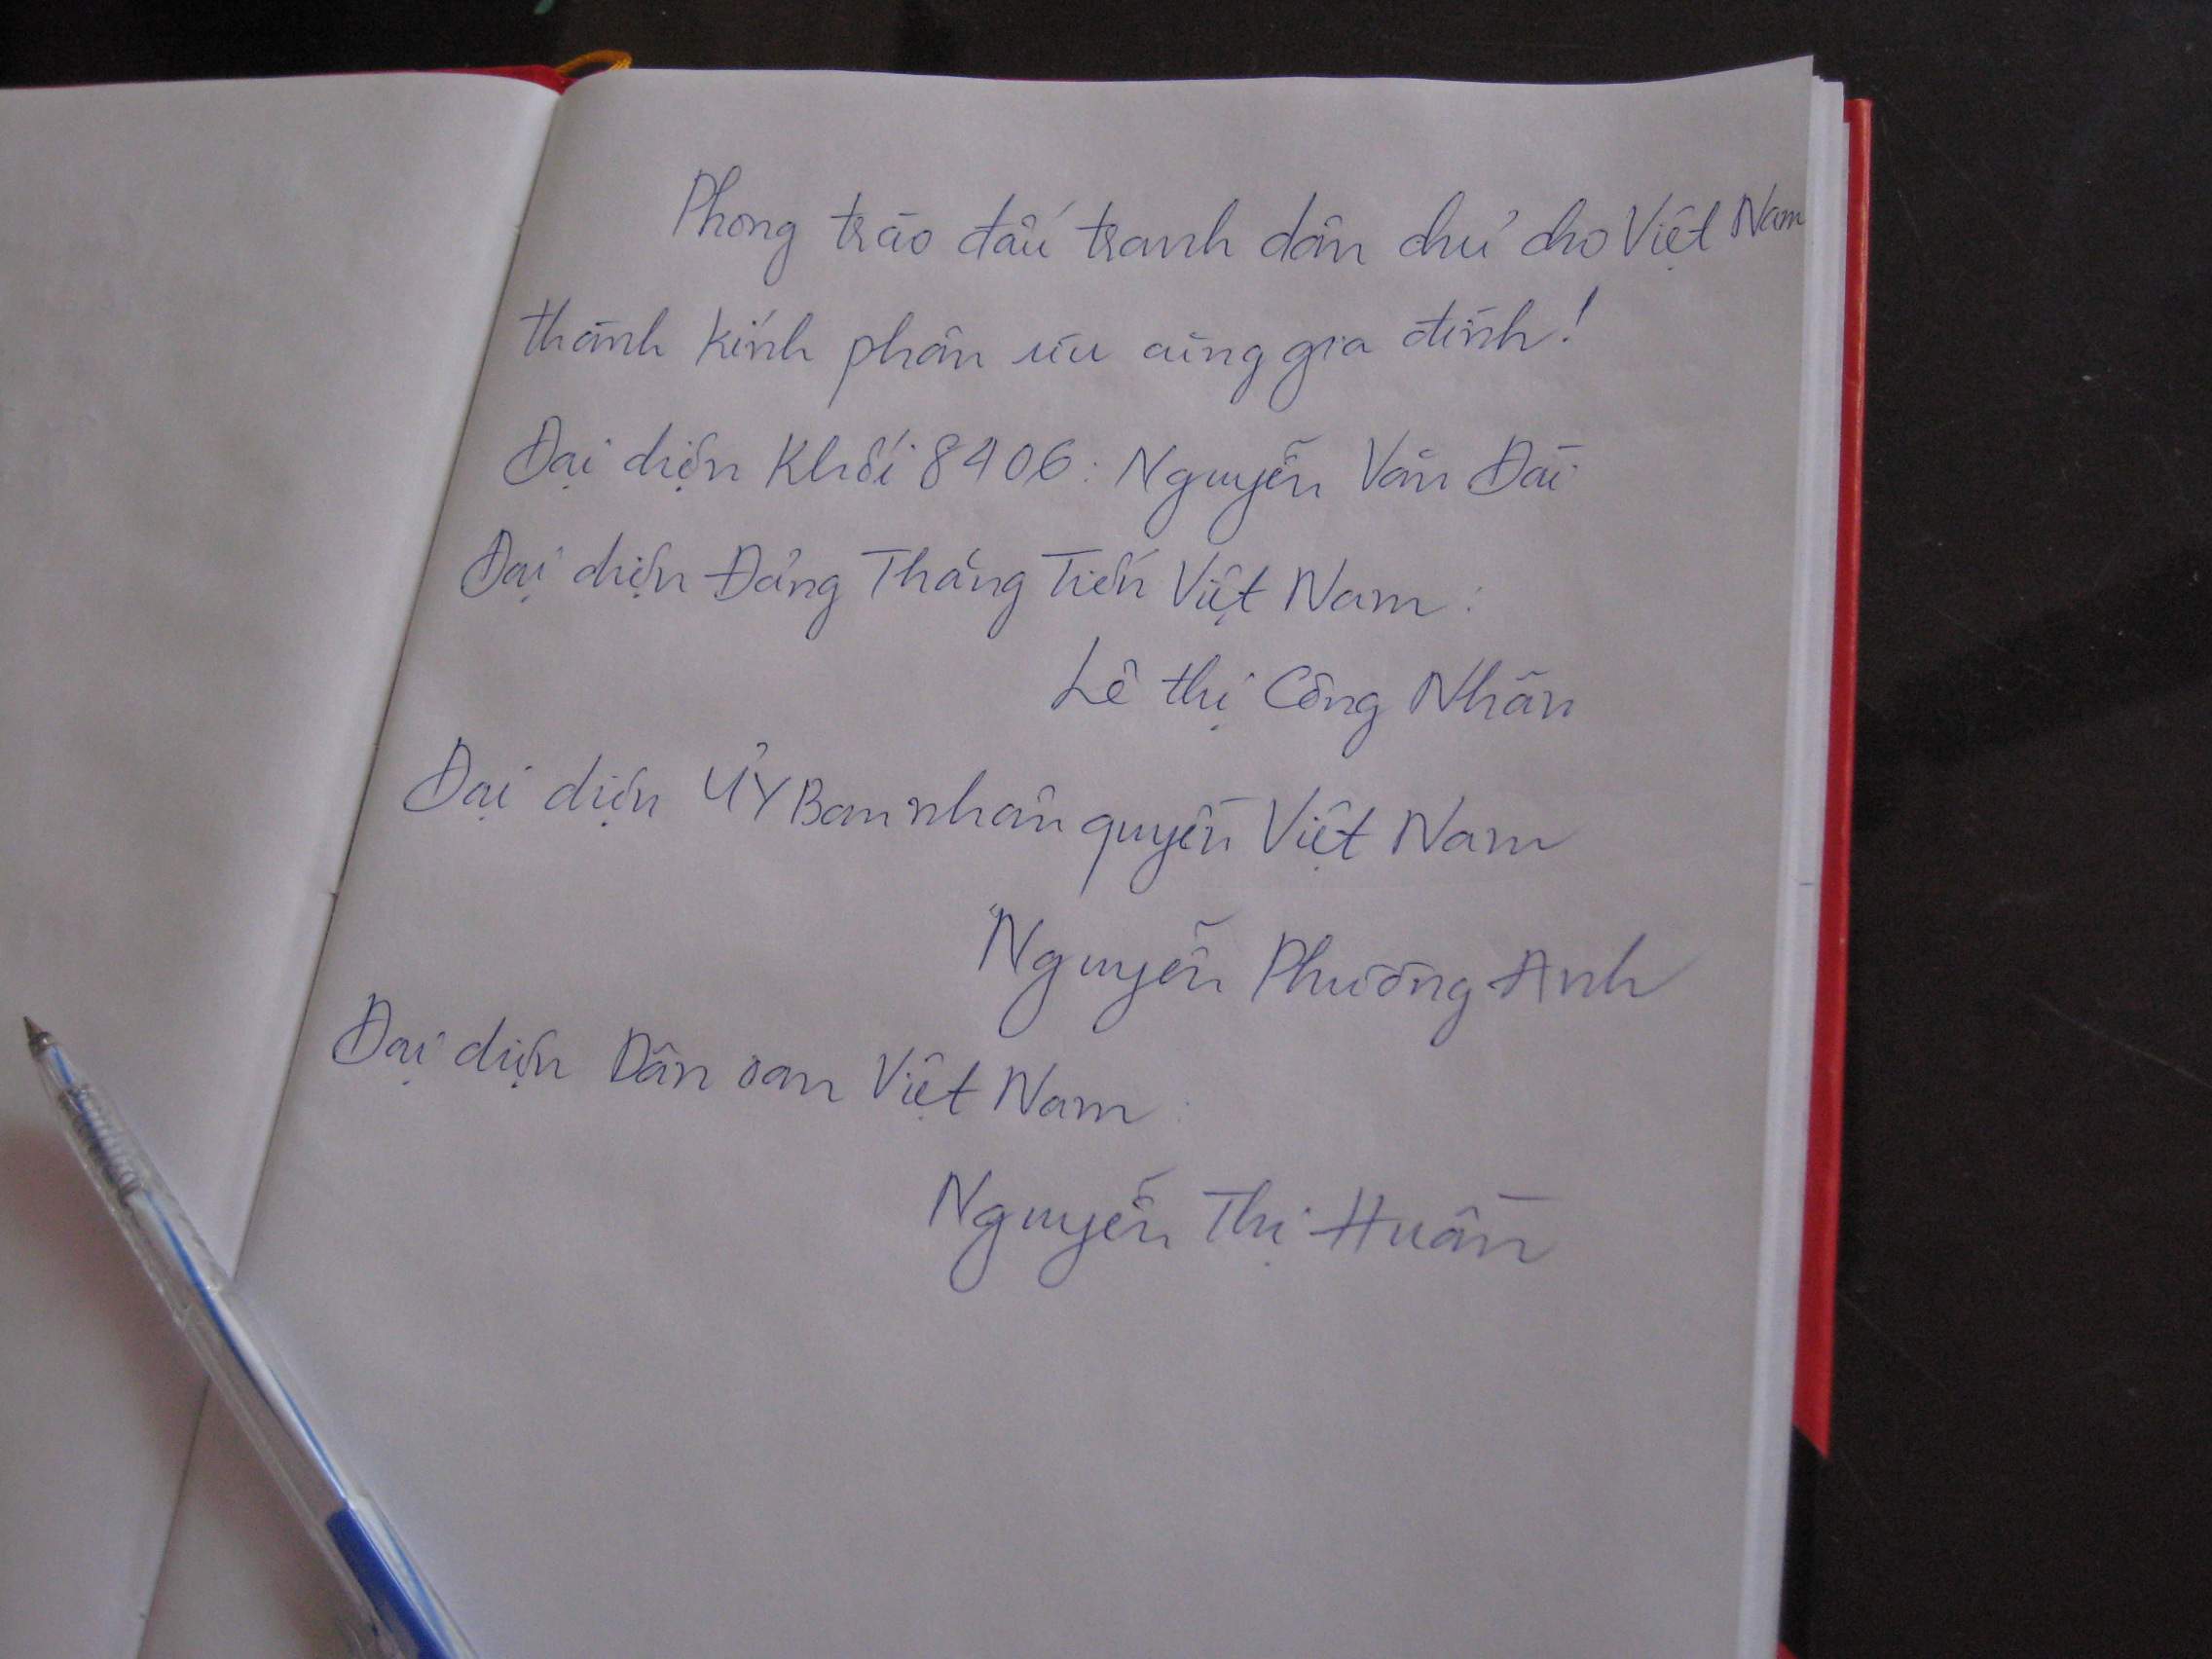 Phong trào đấu tranh dân chủ cho Việt Nam
thành kính phân ưu cùng gia đình!
Đại diện Khối 8406: Nguyễn Văn Đài
Đại diện Đảng Thăng Tiến Việt Nam:
Lê thị Công Nhân
Đại diện Ủy Ban nhân quyền Việt Nam
Nguyễn Phương Anh
Đại diện Dân oan Việt Nam:
Nguyễn Thị Huần